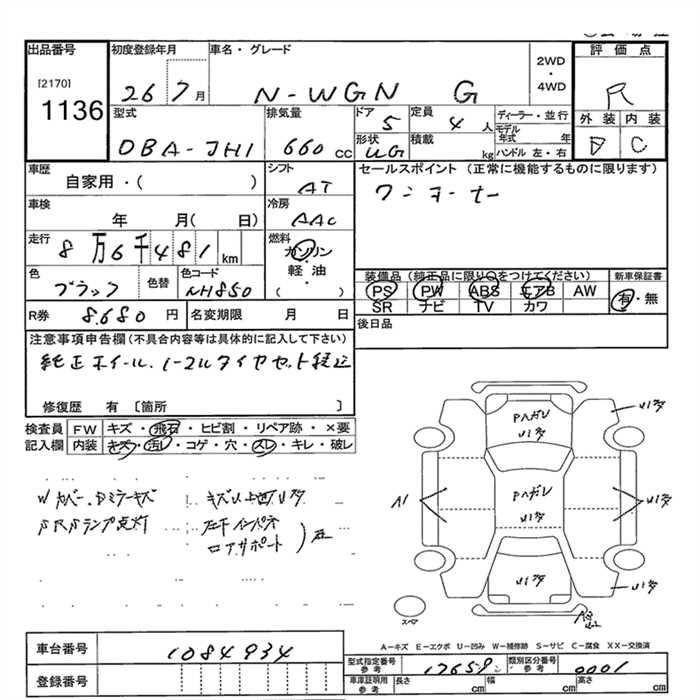 出品番号
[2170]
1136
初度登録年月
26 7月
車名・グレード
N-WGN G
2WD
・
4WD
評価点
R
外装 内装
D C
型式
DBA-JH1
排気量
660cc
ドア
5
定員
4人
ディーラー・並行
モデル年式 年
ハンドル 左・右
形状
UG
積載
kg
車歴
自家用・( )
シフト
AT
セールスポイント (正常に機能するものに限ります)
ワンオーナー
車検
年 月( 日)
冷房
AAC
走行
8万6千481km
燃料
ガソリン
・
軽油
( )
色
ブラック
色替
色コード
NH850
装備品(純正品に限り○をつけてください)
新車保証書
PS PW ABS エアB AW
SR ナビ TV カワ
有・無
R券
8.680円
名変期限 月 日
後日品
注意事項申告欄(不具合内容等は具体的に記入して下さい)
純正ホイール、ノーマルタイヤセット
修復歴 有 〔箇所 〕
検査員記入欄
FW キズ・飛石・ヒビ割・リペア跡・×要
内装 キズ・汚レ・コゲ・穴・スレ・キレ・破レ
カバー、Dミラーキズ
ランプ点灯
インパネ
ロアサポート
PハガレU1フタ
PハガレU1フタ
A1
スペア
A-キズ E-エクボ U-凹み W-補修跡 S-サビ C-腐食 XX-交換済
車台番号
1084934
登録番号
型式指定番号 参考
17658
類別区分番号 参考
0001
車庫証明用 参考
長さ cm
幅 cm
高さ cm